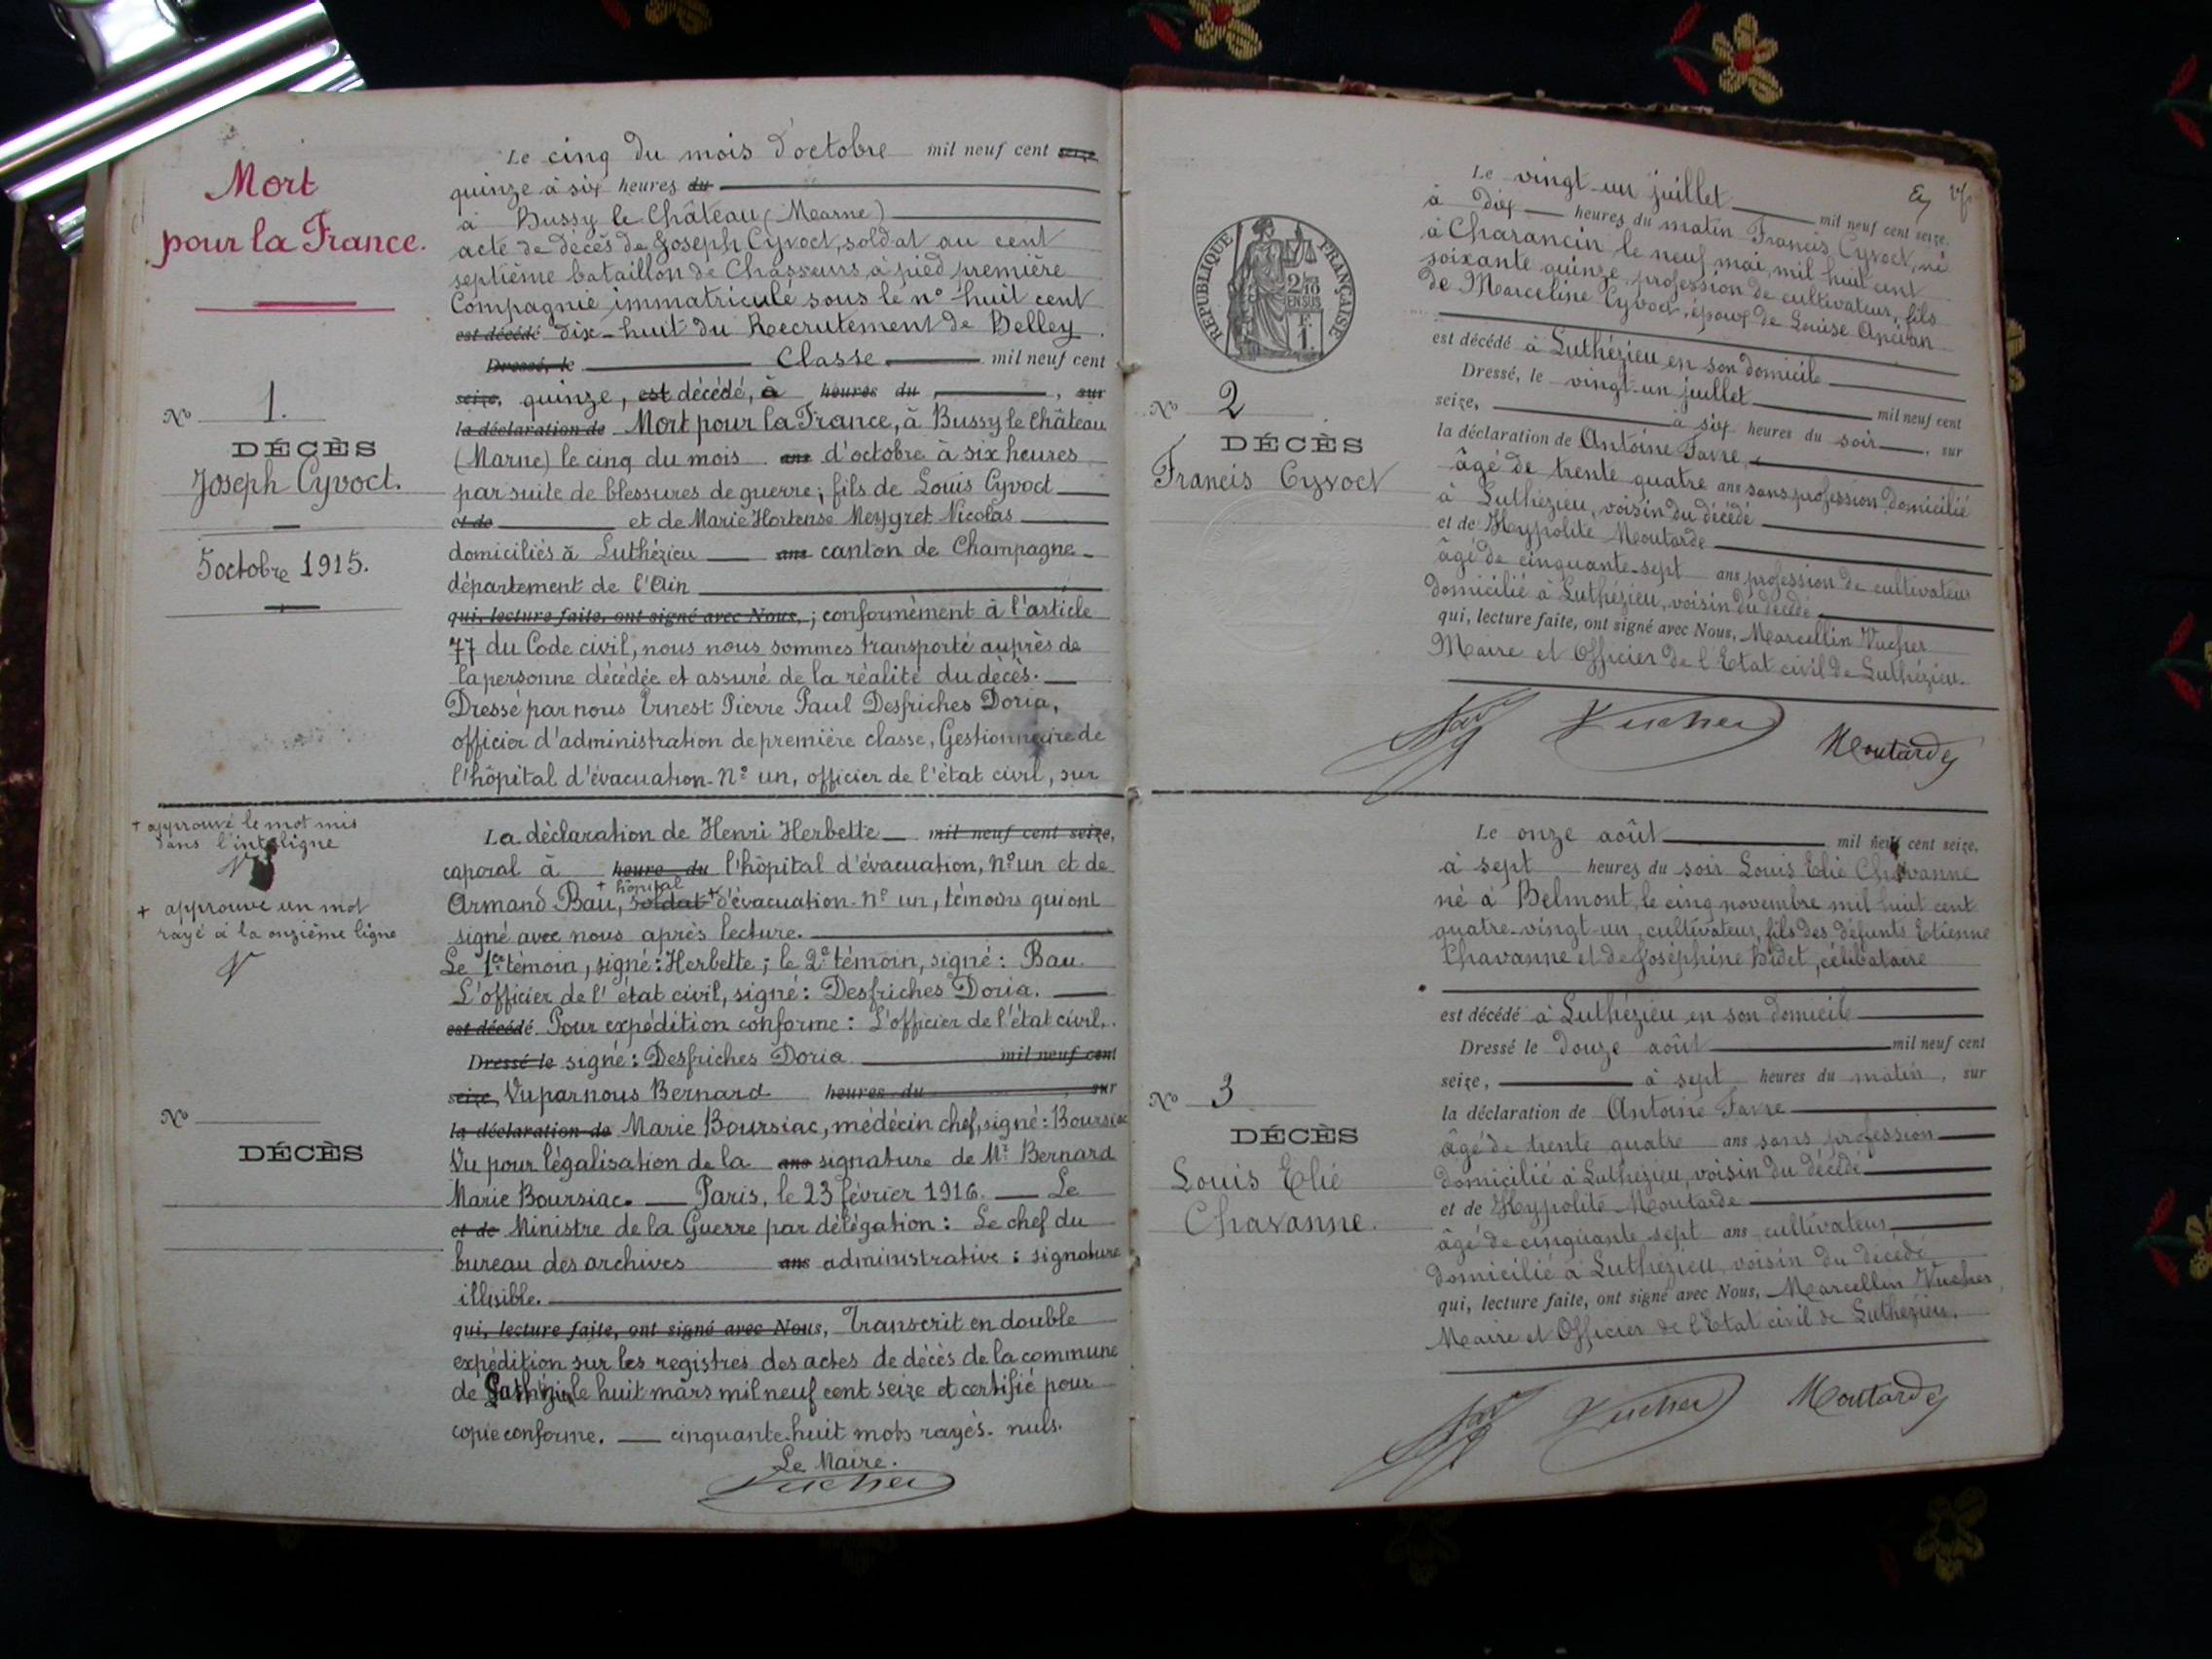 Mort
pour la France.
N° 1.
DÉCÈS
Joseph Cyvoct.
5 octobre 1915.
Le cinq du mois d'octobre mil neuf cent seize
quinze à six heures du
à Bussy le Château (Marne)
acte de décès de Joseph Cyvoct, soldat au cent
septième bataillon de Chasseurs à pied première
Compagnie immatriculé sous le n° huit cent
est décédé dix-huit du Raecrutement de Belley.
Dressé, le Classe mil neuf cent
seize, quinze, est décédé, à heures du , sur
la déclaration de Mort pour la France, à Bussy le Château
(Marne) le cinq du mois ans d'octobre à six heures
par suite de blessures de guerre; fils de Louis Cyvoct
et de et de Marie Hortense Meygret Nicolas
domiciliés à Luthézieu ans canton de Champagne
département de l'Ain
qui, lecture faite, ont signé avec Nous, ; conformément à l'article
77 du Code civil, nous nous sommes transporté auprès de
la personne décédée et assuré de la réalité du décès.
Dressé par nous Ernest Pierre Paul Desfriches Doria,
officier d'administration de première classe, Gestionnaire de
l'hôpital d'évacuation N° un, officier de l'état civil, sur
+ approuvé le mot mis
dans l'interligne
V
+ approuvé un mot
rayé à la onzième ligne
V
N°
DÉCÈS
La déclaration de Henri Herbette mil neuf cent seize,
caporal à heure du l'hôpital d'évacuation, N° un et de
+ hôpital +
Armand Bau, soldat d'évacuation N° un, témoins qui ont
signé avec nous après lecture.
Le 1er témoin, signé: Herbette; le 2e témoin, signé: Bau.
L'officier de l'état civil, signé: Desfriches Doria.
est décédé Pour expédition conforme: L'officier de l'état civil,
Dressé le signé: Desfriches Doria mil neuf cent
seize, Vu par nous Bernard heures du sur
la déclaration de Marie Boursiac, médécin chef, signé: Boursiac
Vu pour légalisation de la ans signature de Mr Bernard
Marie Boursiac. Paris, le 23 février 1916. Le
et de Ministre de la Guerre par délégation: Le chef du
bureau des archives ans administrative: signature
illisible.
qui, lecture faite, ont signé avec Nous, Transcrit en double
expédition sur les registres des actes de décès de la commune
de le huit mars mil neuf cent seize et certifié pour
copie conforme. cinquante-huit mots rayés nuls.
Le Maire.
Vucher
RÉPUBLIQUE FRANÇAISE
2/10
EN SUS
F.
1.
N° 2
DÉCÈS
Francis Cyvoct
Le vingt-un juillet mil neuf cent seize,
à dix heures du matin Francis Cyvoct, né
à Charancin le neuf mai, mil huit cent
soixante quinze, profession de cultivateur, fils
de Marceline Cyvoct, époux de Louise
est décédé à Luthézieu en son domicile
Dressé, le vingt-un juillet mil neuf cent
seize, à six heures du soir, sur
la déclaration de Antoine Favre,
âgé de trente quatre ans sans profession domicilié
à Luthézieu, voisin du décédé
et de Hypolite Moutarde
âgé de cinquante-sept ans profession de cultivateur
domicilié à Luthézieu, voisin du décédé
qui, lecture faite, ont signé avec Nous, Marcellin Vucher
Maire et Officier de l'Etat civil de Luthézieu.
Favre Vucher Moutarde
N° 3
DÉCÈS
Louis Elie
Chavanne.
Le onze août mil neuf cent seize,
à sept heures du soir Louis Elie Chavanne
né à Belmont, le cinq novembre mil huit cent
quatre-vingt-un, cultivateur, fils des défunts Etienne
Chavanne et de Joséphine Bidet, célibataire
est décédé à Luthézieu en son domicile
Dressé le douze août mil neuf cent
seize, à sept heures du matin, sur
la déclaration de Antoine Favre
âgé de trente quatre ans sans profession
domicilié à Luthézieu, voisin du décédé
et de Hypolite Moutarde
âgé de cinquante-sept ans, cultivateur
domicilié à Luthézieu, voisin du décédé
qui, lecture faite, ont signé avec Nous, Marcellin Vucher
Maire et Officier de l'Etat civil de Luthézieu.
Favre Vucher Moutarde